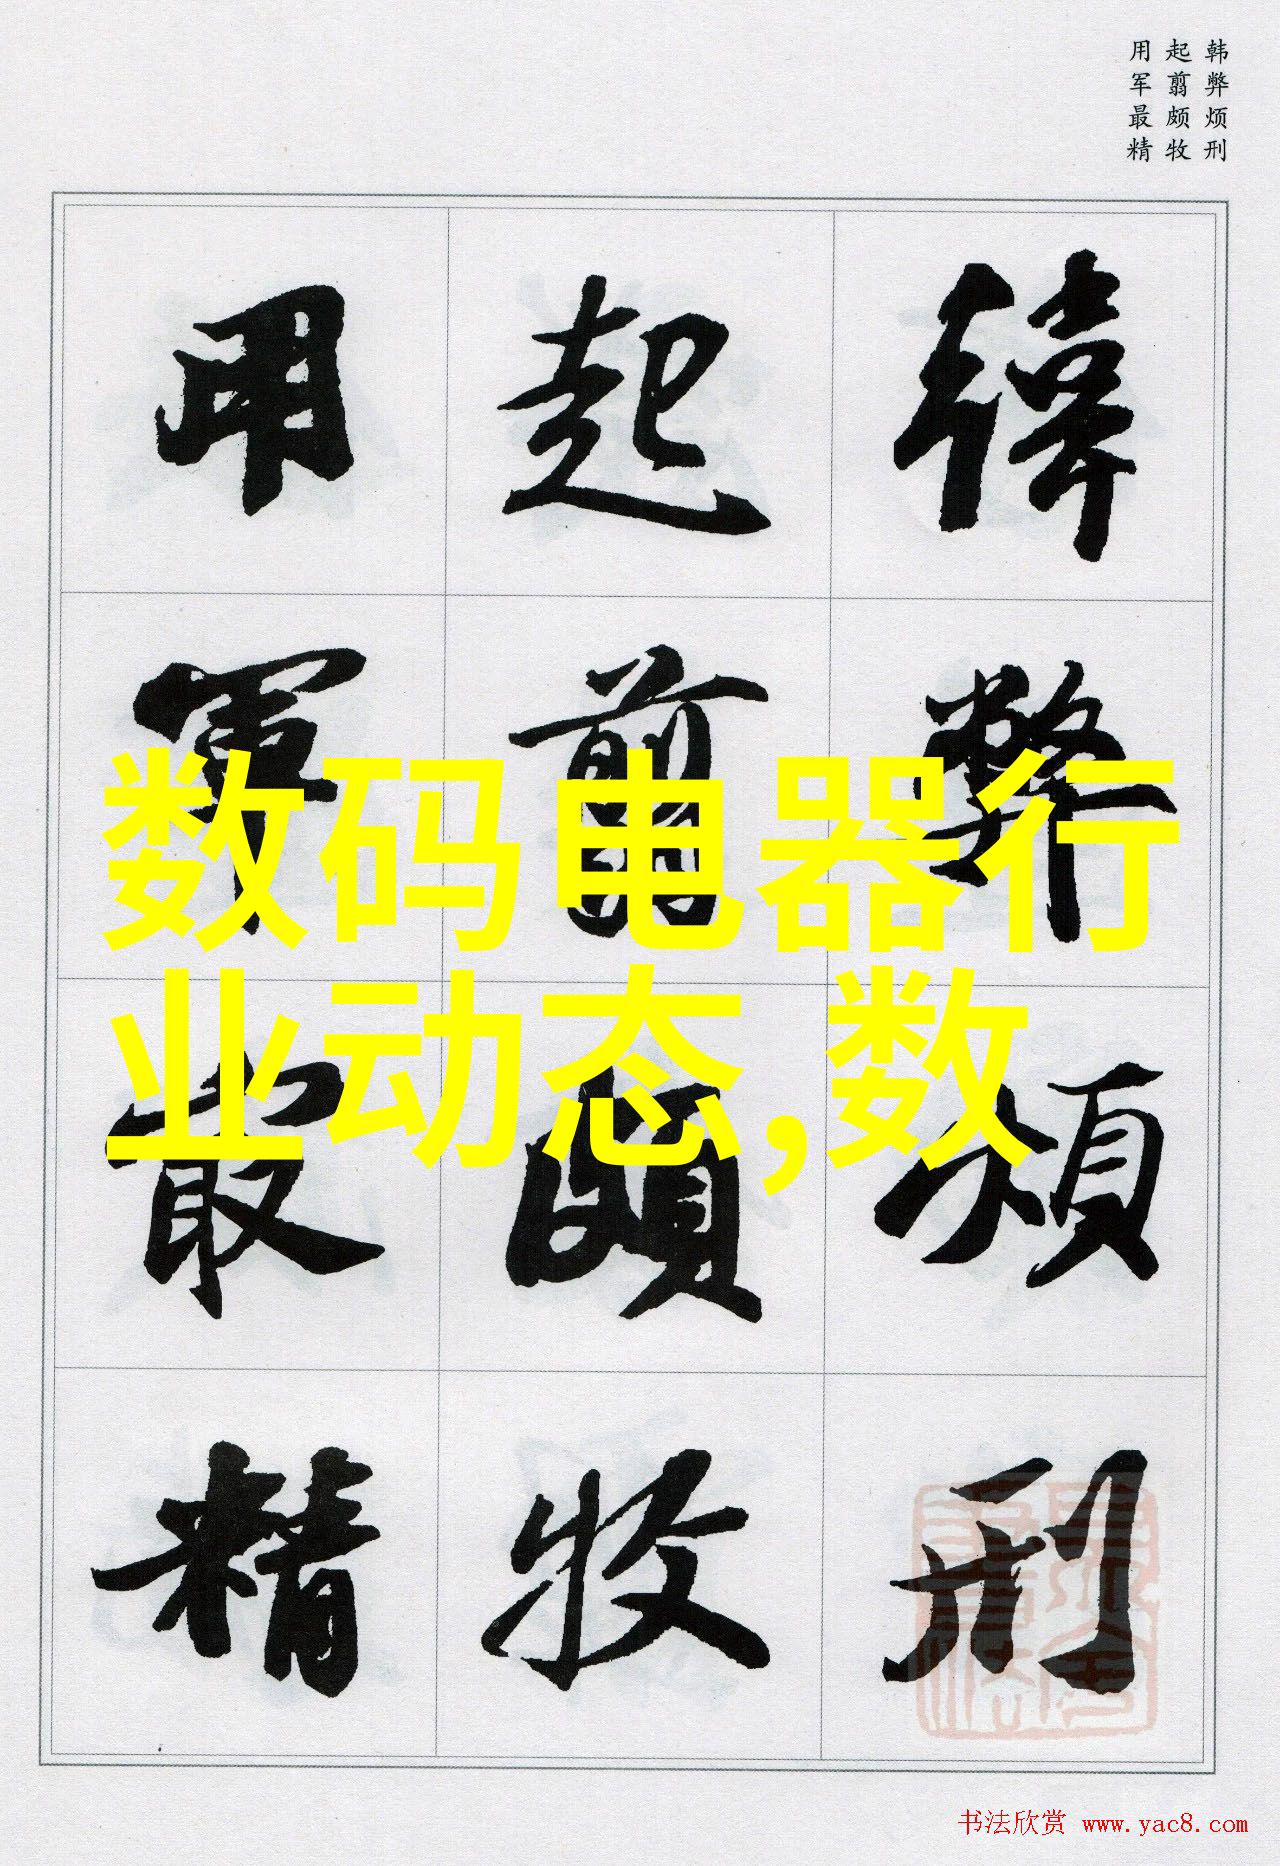 韩弊烦刑
起翦颇牧
用军最精
韓弊煩刑
起翦頗牧
用軍最精
数码电器行
业动态,数
书法欣赏 www.yac8.com